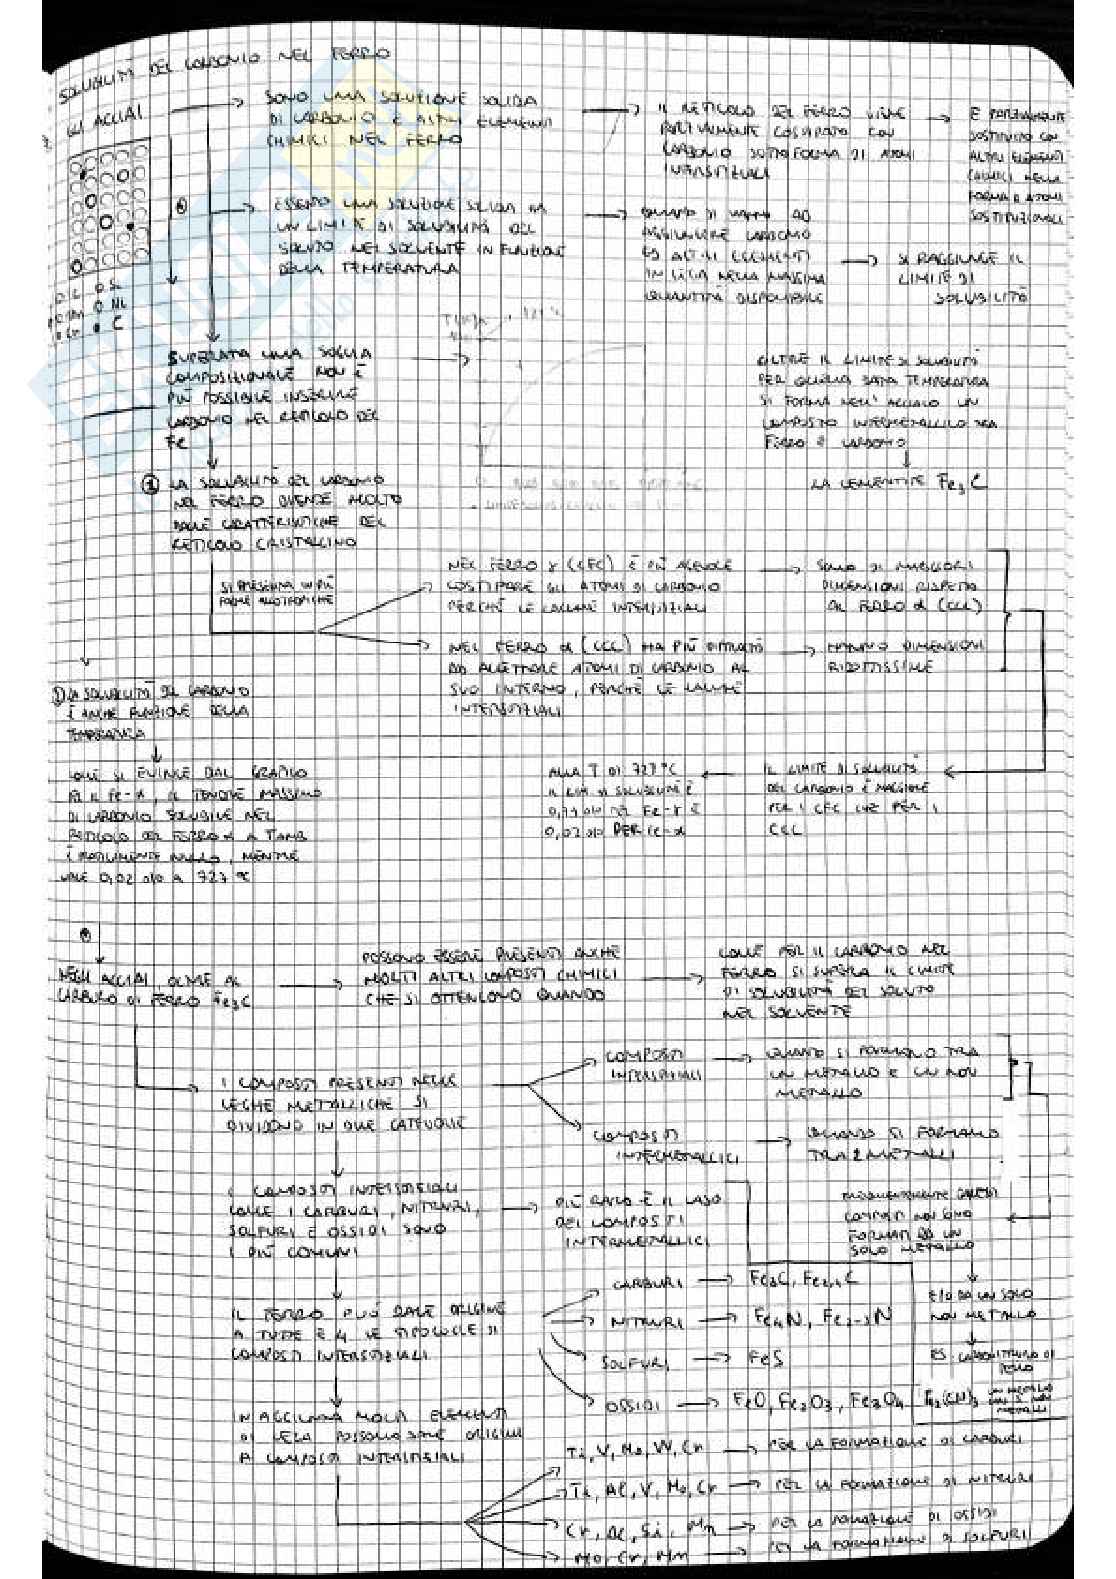 SOLUBILITÀ DEL CARBONIO NEL FERRO
GLI ACCIAI
SONO UNA SOLUZIONE SOLIDA
DI CARBONIO E ALTRI ELEMENTI
CHIMICI NEL FERRO
IL RETICOLO DEL FERRO VIENE
PARZIALMENTE COSTIPATO CON
CARBONIO SOTTOFORMA DI ATOMI
INTERSTIZIALI
E PARZIALMENTE
SOSTITUITO CON
ALTRI ELEMENTI
CHIMICI NELLA
FORMA DI ATOMI
SOSTITUZIONALI
ESSENDO UNA SOLUZIONE SOLIDA HA
UN LIMITE DI SOLUBILITÀ DEL
SOLUTO NEL SOLVENTE IN FUNZIONE
DELLA TEMPERATURA
QUANDO SI VANNO AD
AGGIUNGERE CARBONIO
ED ALTRI ELEMENTI
IN LEGA NELLA MASSIMA
QUANTITÀ DISPONIBILE
SI RAGGIUNGE IL
LIMITE DI
SOLUBILITÀ
C
SUPERATA UNA SOGLIA
COMPOSIZIONALE NON È
PIÙ POSSIBILE INSERIRE
CARBONIO NEL RETICOLO DEL
Fe
OLTRE IL LIMITE DI SOLUBILITÀ
PER QUELLA DATA TEMPERATURA
SI FORMA NELL'ACCIAIO UN
COMPOSTO INTERMETALLICO TRA
FERRO E CARBONIO
LA CEMENTITE Fe3C
LA SOLUBILITÀ DEL CARBONIO
NEL FERRO DIPENDE MOLTO
DALLE CARATTERISTICHE DEL
RETICOLO CRISTALLINO
SI PRESENTA IN PIÙ
FORME ALLOTROPICHE
NEL FERRO γ (CFC) È PIÙ AGEVOLE
COSTIPARE GLI ATOMI DI CARBONIO
PERCHÉ LE LACUNE INTERSTIZIALI
SONO DI MAGGIORI
DIMENSIONI RISPETTO
AL FERRO α (CCC)
NEL FERRO α (CCC) HA PIÙ DIFFICOLTÀ
AD ACCETTARE ATOMI DI CARBONIO AL
SUO INTERNO, PERCHÉ LE LACUNE
INTERSTIZIALI
HANNO DIMENSIONI
RIDOTTISSIME
LA SOLUBILITÀ DEL CARBONIO
È ANCHE FUNZIONE DELLA
TEMPERATURA
COME SI EVINCE DAL GRAFICO
PER IL Fe-α, IL TENORE MASSIMO
DI CARBONIO SOLUBILE NEL
RETICOLO DEL FERRO α A TAMB
È PRATICAMENTE NULLO, MENTRE
VALE 0,02 % A 727 °C
IL LIMITE DI SOLUBILITÀ
DEL CARBONIO È MAGGIORE
PER I CFC CHE PER I
CCC
ALLA T DI 727 °C
IL LIM DI SOLUBILITÀ È
0,77 % PER Fe-γ E
0,02 % PER Fe-α
NEGLI ACCIAI OLTRE AL
CARBURO DI FERRO Fe3C
POSSONO ESSERE PRESENTI ANCHE
MOLTI ALTRI COMPOSTI CHIMICI
CHE SI OTTENGONO QUANDO
COME PER IL CARBONIO NEL
FERRO SI SUPERA IL LIMITE
DI SOLUBILITÀ DEL SOLUTO
NEL SOLVENTE
I COMPOSTI PRESENTI NELLE
LEGHE METALLICHE SI
DIVIDONO IN DUE CATEGORIE
COMPOSTI
INTERSTIZIALI
QUANDO SI FORMANO TRA
UN METALLO E UN NON
METALLO
COMPOSTI
INTERMETALLICI
QUANDO SI FORMANO
TRA 2 METALLI
I COMPOSTI INTERSTIZIALI
COME I CARBURI, NITRURI,
SOLFURI E OSSIDI SONO
I PIÙ COMUNI
PIÙ RARO È IL CASO
DEI COMPOSTI
INTERMETALLICI
FREQUENTEMENTE QUESTI
COMPOSTI NON SONO
FORMATI DA UN
SOLO METALLO
E/O DA UN SOLO
NON METALLO
ES. CARBONITRURO DI
IL FERRO PUÒ DARE ORIGINE
A TUTTE E 4 LE TIPOLOGIE DI
COMPOSTI INTERSTIZIALI
CARBURI
Fe3C, Fe2,4C
NITRURI
Fe4N, Fe2-3N
SOLFURI
FeS
OSSIDI
FeO, Fe2O3, Fe3O4
UN METALLO
METALLI
IN AGGIUNTA MOLTI ELEMENTI
DI LEGA POSSONO DARE ORIGINE
A COMPOSTI INTERSTIZIALI
Ti, V, Mo, W, Cr
PER LA FORMAZIONE DI CARBURI
Ti, Al, V, Mo, Cr
PER LA FORMAZIONE DI NITRURI
Cr, Al, Si, Mn
PER LA FORMAZIONE DI OSSIDI
Mo, Cr, Mn
PER LA FORMAZIONE DI SOLFURI